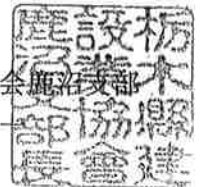 会鹿沼支部
栃木縣建
設業協會
鹿沼支部長